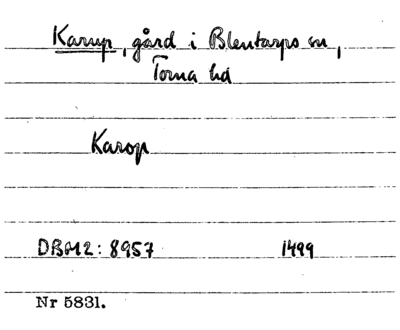 Karup, gård i Blentarps sn,
Torna hd
Karop
DBM2: 8957 1499
Nr 5831.